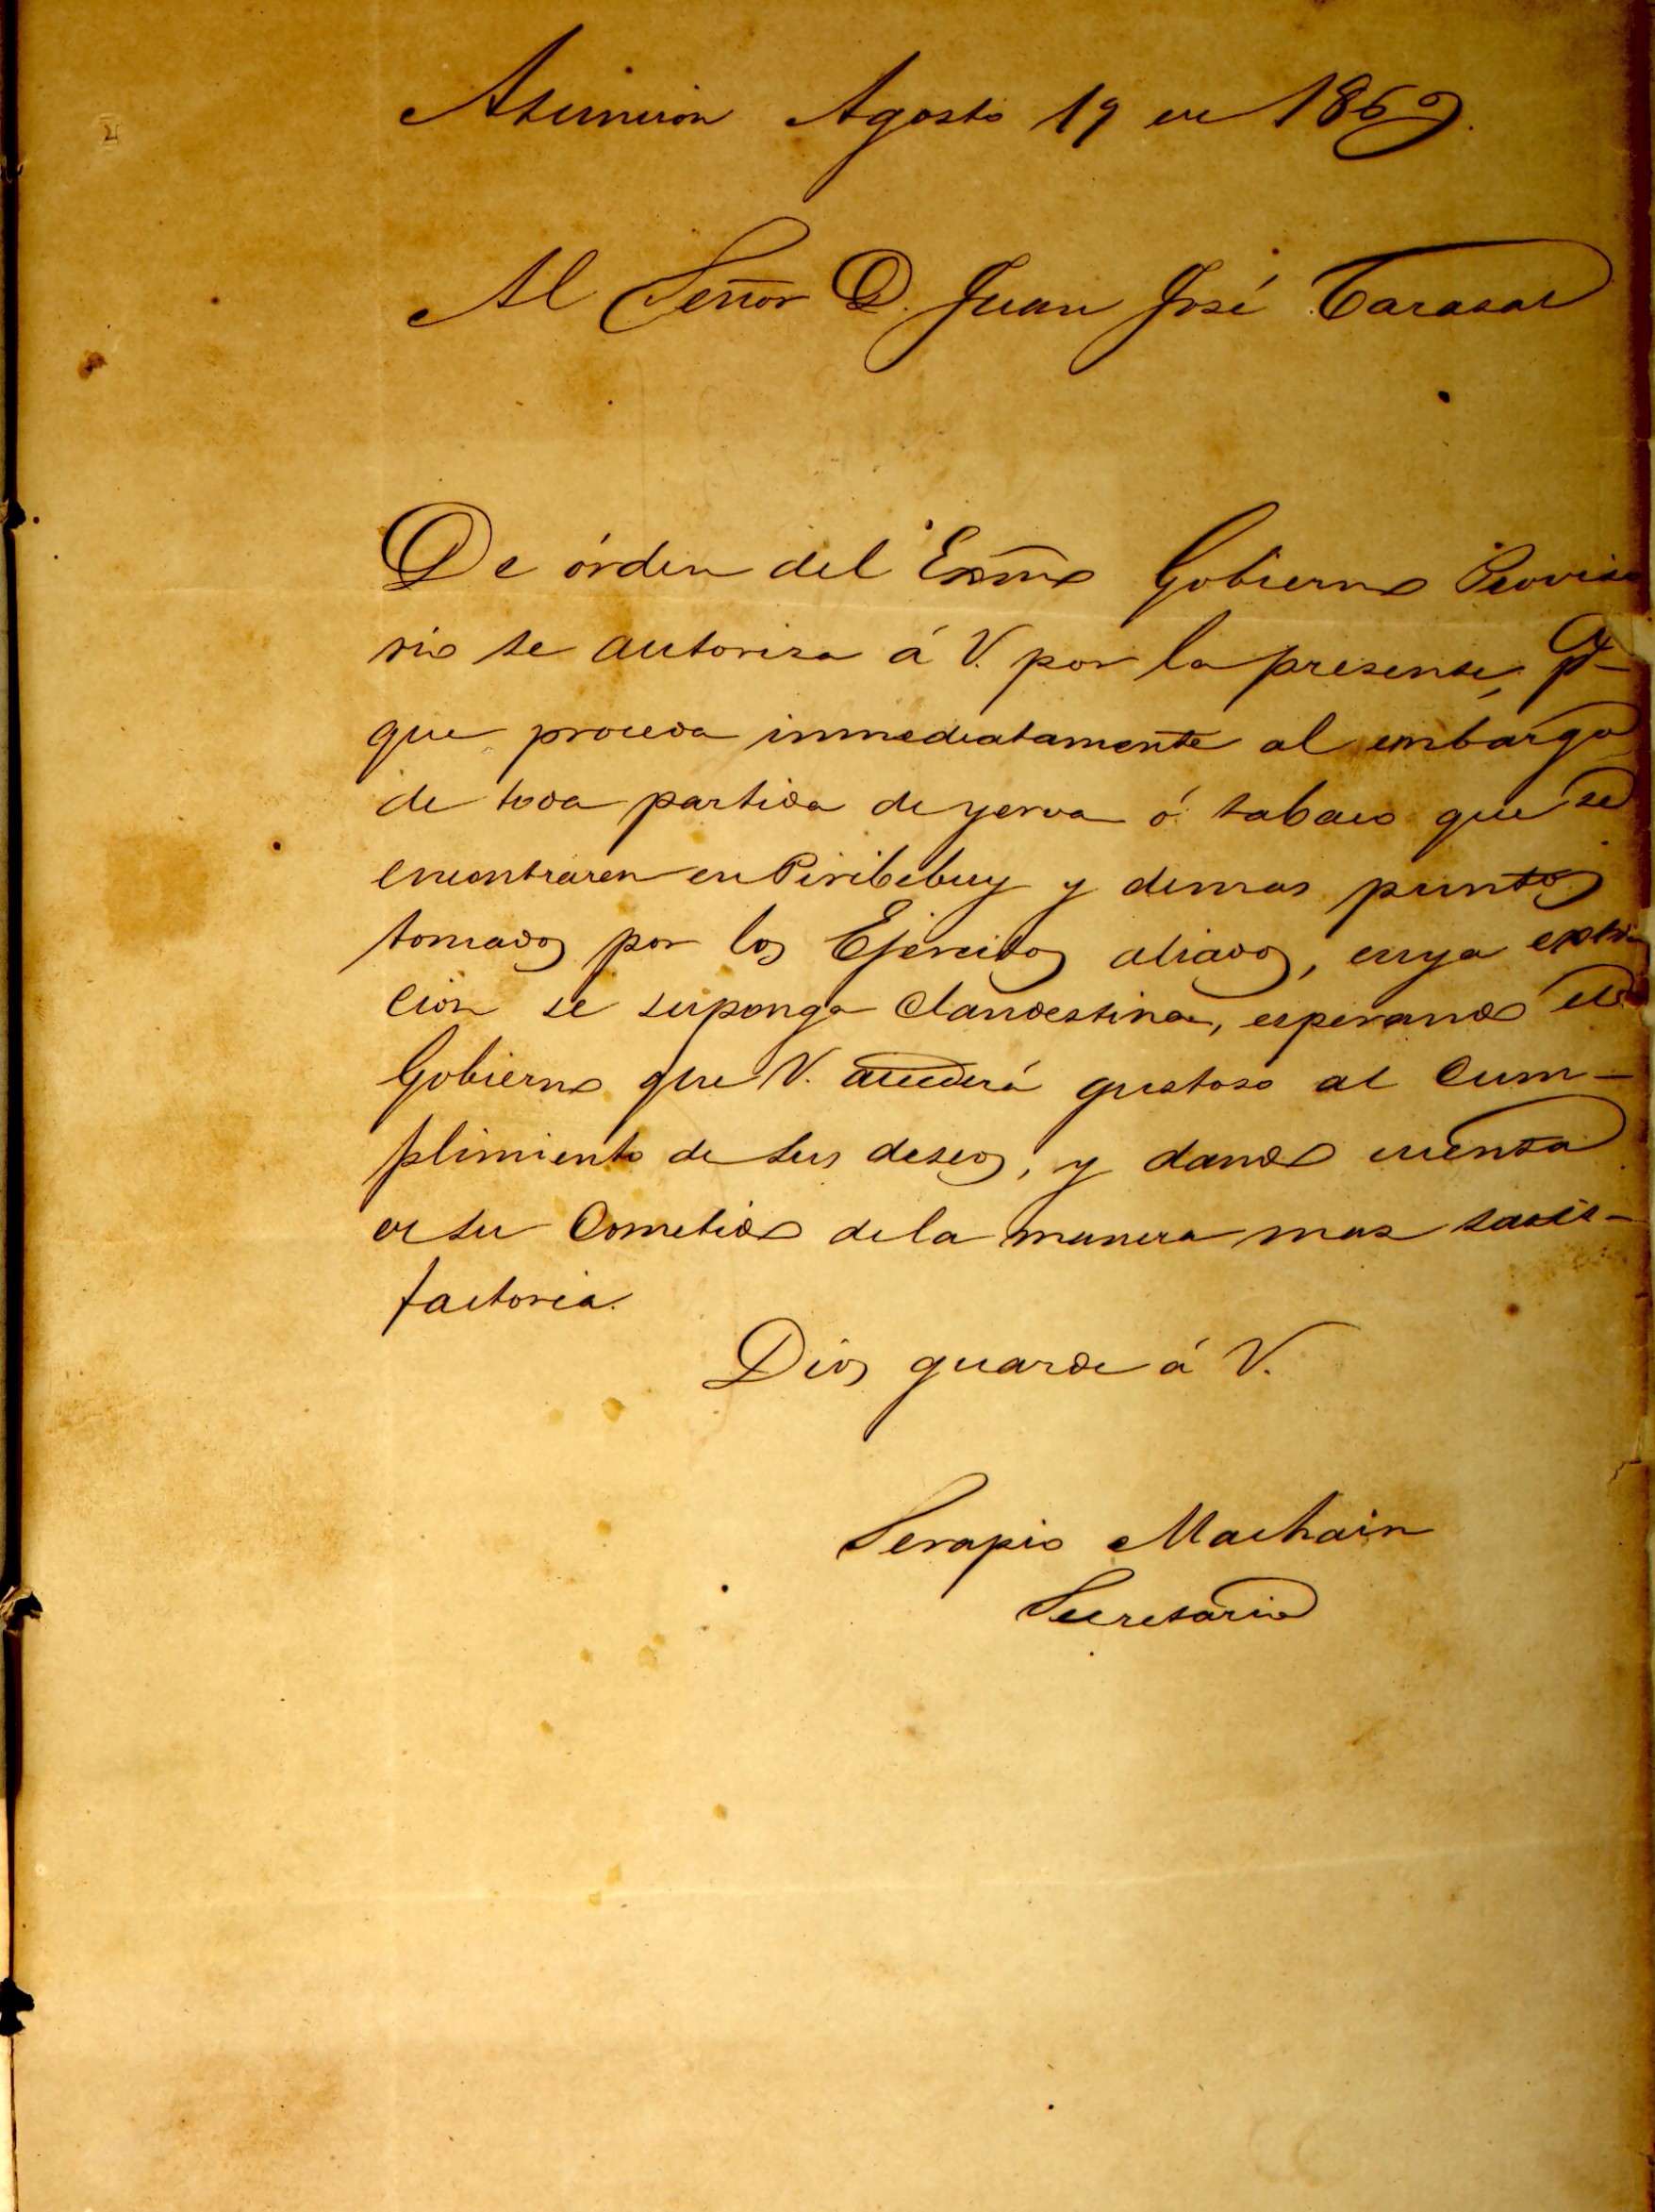 Asuncion Agosto 19 de 1869.
Al Señor D. Juan José
De órden del Exmo Gobierno Proviso
rio se autoriza á V. por la presente, pª
que proceda inmediatamente al embargo
de toda partida de yerva ó tabaco que se
encontraren en Piribebuy y demas puntos
tomados por los Ejercitos aliados, cuya
cion se suponga clandestina, esperando el
Gobierno que V. accederá gustoso al cum-
plimiento de sus deseos, y dando cuenta
de su cometido de la manera mas satis-
factoria.
Dios guarde á V.
Serapio Machain
Secretario